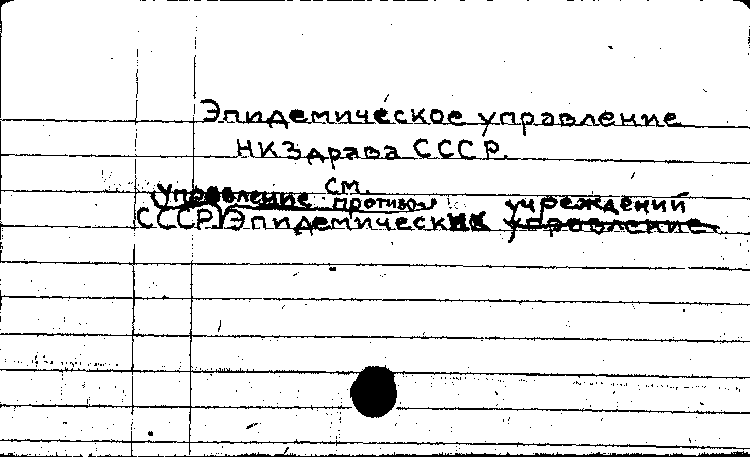 Эпидемическое управление
НКЗдрава СССР.
см.
Управление противо учреждений
СССР. Эпидемических управление